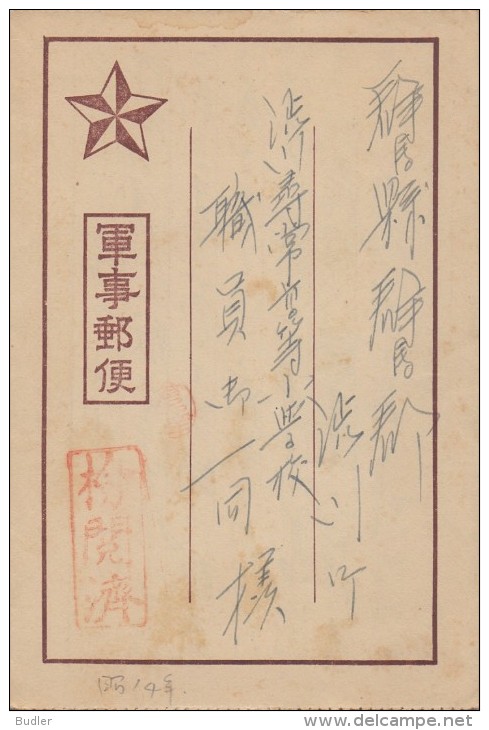 群馬縣群馬郡
渋川町
渋川尋常高等小學校
職員御一同様
軍事郵便
検閲濟
昭14年.
Budler